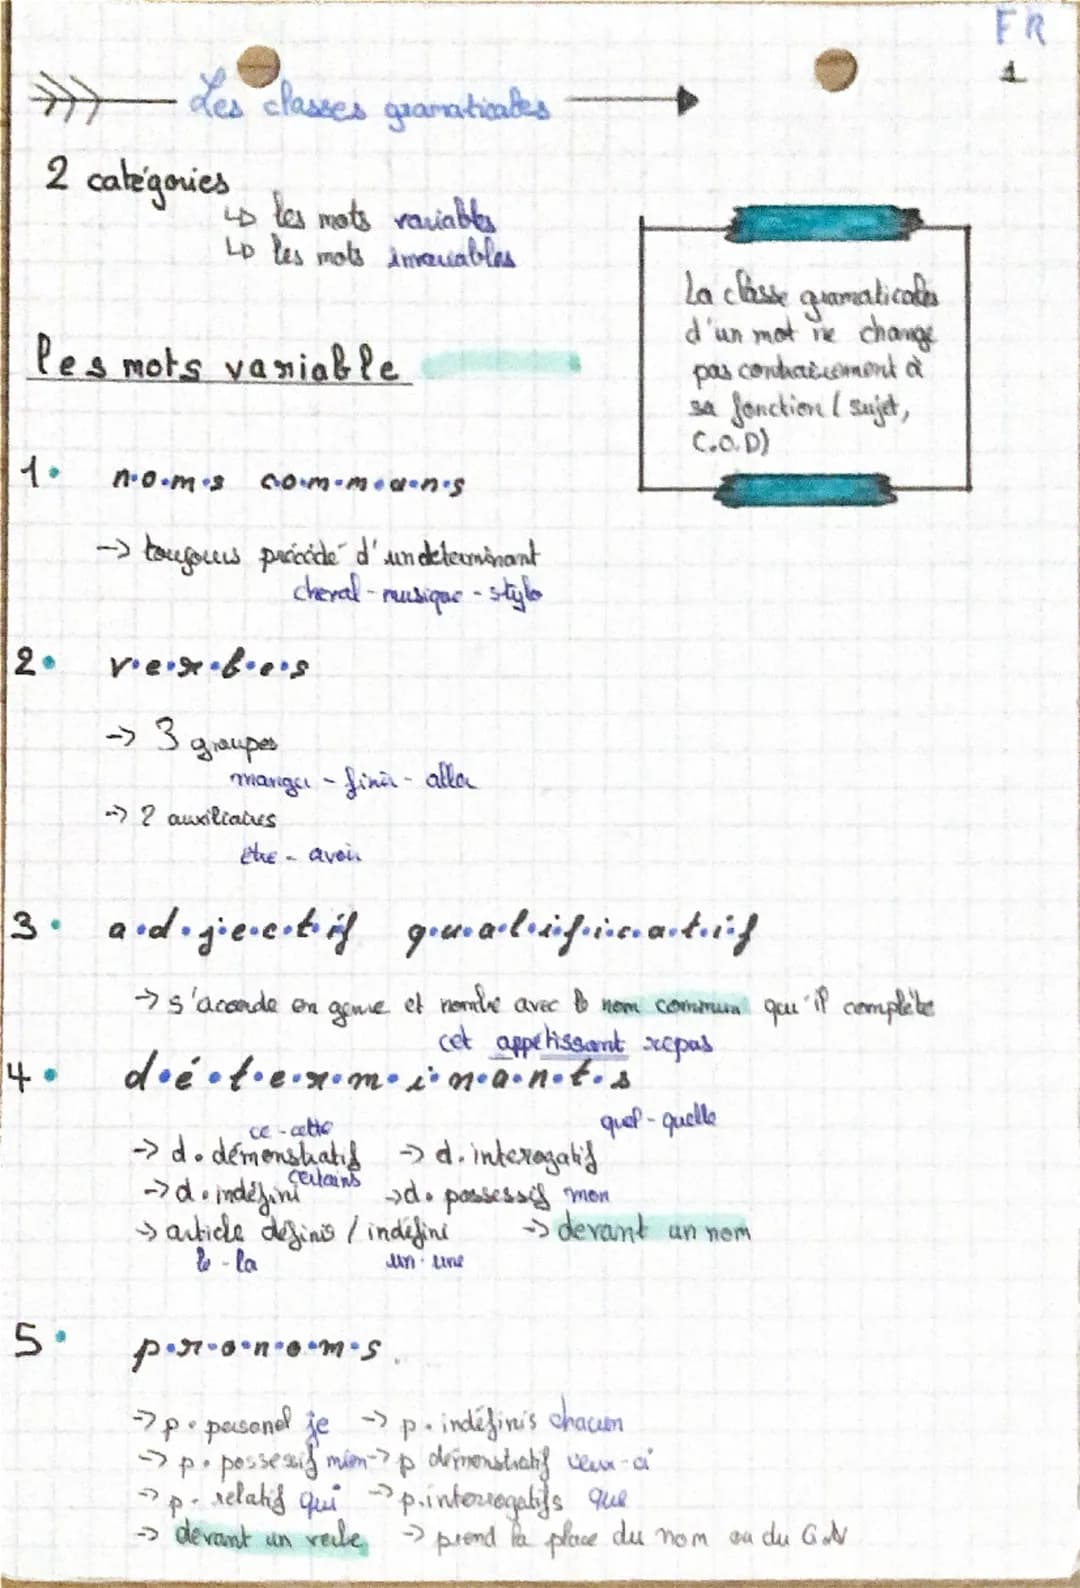 FR
1
Les classes gramaticales
2 catégories
↳ les mots variables
↳ les mots invariables
La classe gramaticales
d'un mot ne change
pas contrairement à
sa fonction (sujet,
C.O.D)
les mots variable
1. n.o.m.s c.o.m.m.u.n.s
-> toujours précédé d'un determinant
cheval - musique - stylo
2. v.e.r.b.e.s
-> 3 groupes
manger - finir - aller
-> 2 auxiliaires
être - avoir
3. a.d.j.e.c.t.i.f q.u.a.l.i.f.i.c.a.t.i.f
-> s'accorde en genre et nombre avec le nom commun qu'il complète
cet appétissant repas
4. d.é.t.e.r.m.i.n.a.n.t.s
ce - cette quel - quelle
-> d. démonstratif -> d. interogatif
certains
-> d. indéfini -> d. possessif mon
-> article définis / indéfini -> devant un nom
le - la un - une
5. p.r.o.n.o.m.s
-> p. personel je -> p. indéfinis chacun
-> p. possessif mien -> p démonstratif ceux-ci
-> p. relatif qui -> p. interrogatifs que
-> devant un verbe -> prend la place du nom ou du G.N